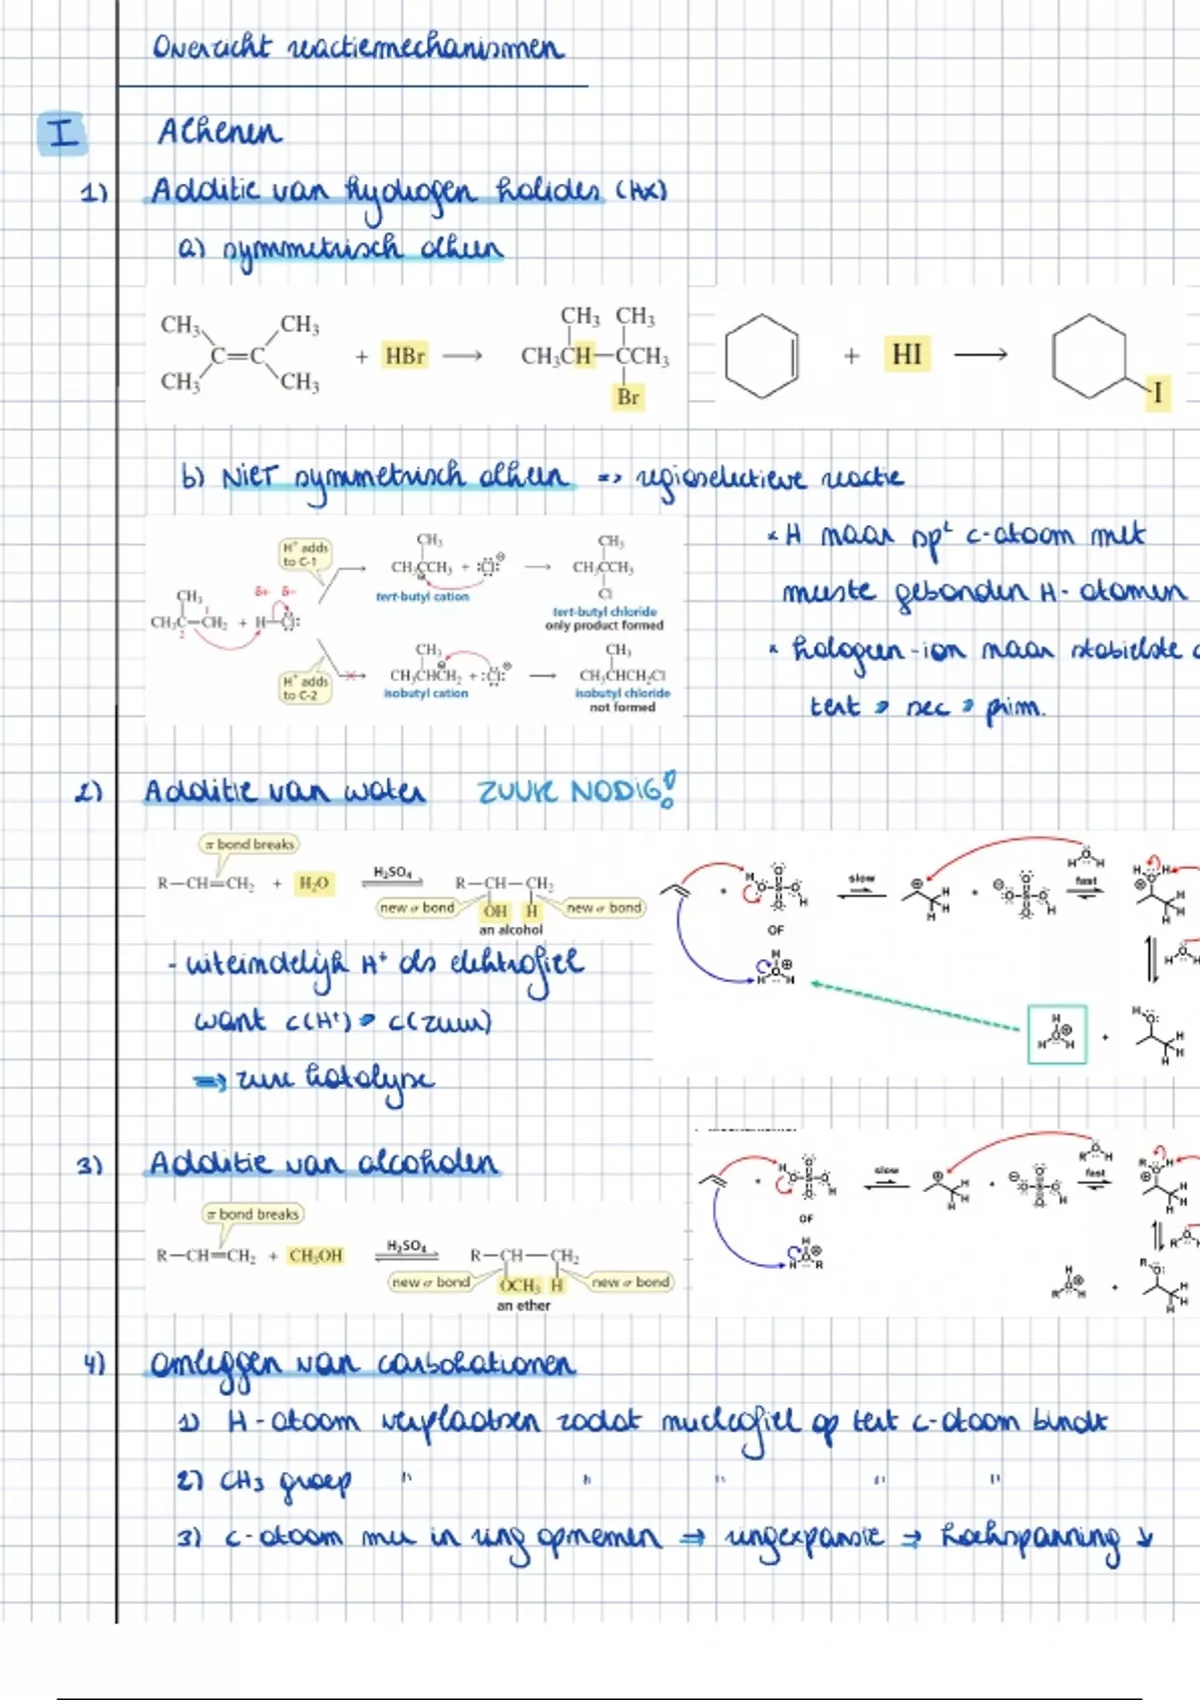 Overzicht reactiemechanismen
I Alkenen
1) Additie van hydrogen halides (HX)
a) symmetrisch alkeen
CH3 CH3 C=C CH3 CH3 + HBr ⟶ CH3 CH3 CH3CH—CCH3 Br
+ HI ⟶ I
b) NIET symmetrisch alkeen => regioselectieve reactie
× H naar sp² c-atoom met
meeste gebonden H-atomen
× halogeen-ion naar stabielste c
tert > sec > prim.
H+ adds to C-1
CH3 CH3CCH3 + :Cl:⊖ ⟶ CH3 CH3CCH3 Cl
tert-butyl cation
tert-butyl chloride
only product formed
CH3 CH3C=CH2 + H—Cl: δ+ δ− 1 2
H+ adds to C-2
CH3 CH3CHCH2 + :Cl:⊖ ⟶ CH3 CH3CHCH2Cl
isobutyl cation
isobutyl chloride
not formed
2) Additie van water ZUUR NODIG!
π bond breaks
R—CH=CH2 + H2O H2SO4 R—CH—CH2
new σ bond OH H new σ bond
an alcohol
slow fast
OF
- uiteindelijk H+ als elektrofiel
want c(H+) > c(zuur)
=> zure katalyse
3) Additie van alcoholen
π bond breaks
R—CH=CH2 + CH3OH H2SO4 R—CH—CH2
new σ bond OCH3 H new σ bond
an ether
slow fast
OF
4) Omleggen van carbokationen
1) H-atoom verplaatsen zodat nucleofiel op tert c-atoom bindt
2) CH3 groep " " " " "
3) c-atoom mee in ring opnemen => ringexpansie => hoekspanning ↓